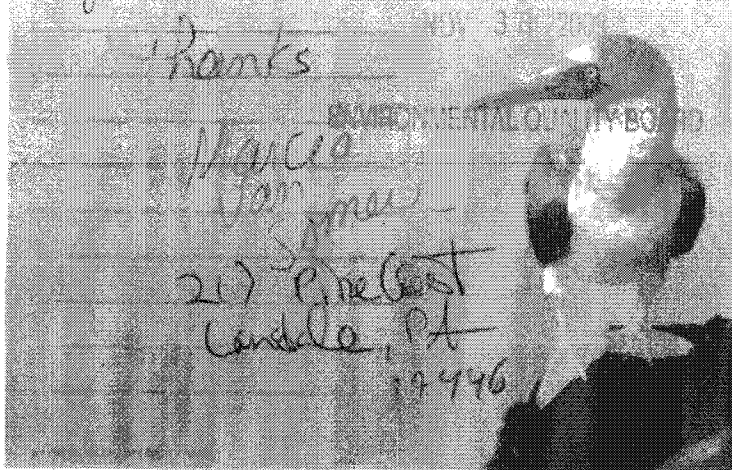 NOV 3 2009
Thanks
ENVIRONMENTAL QUALITY BOARD
Marcia
Van
217 Pine Crest
Lansdale, PA
19446